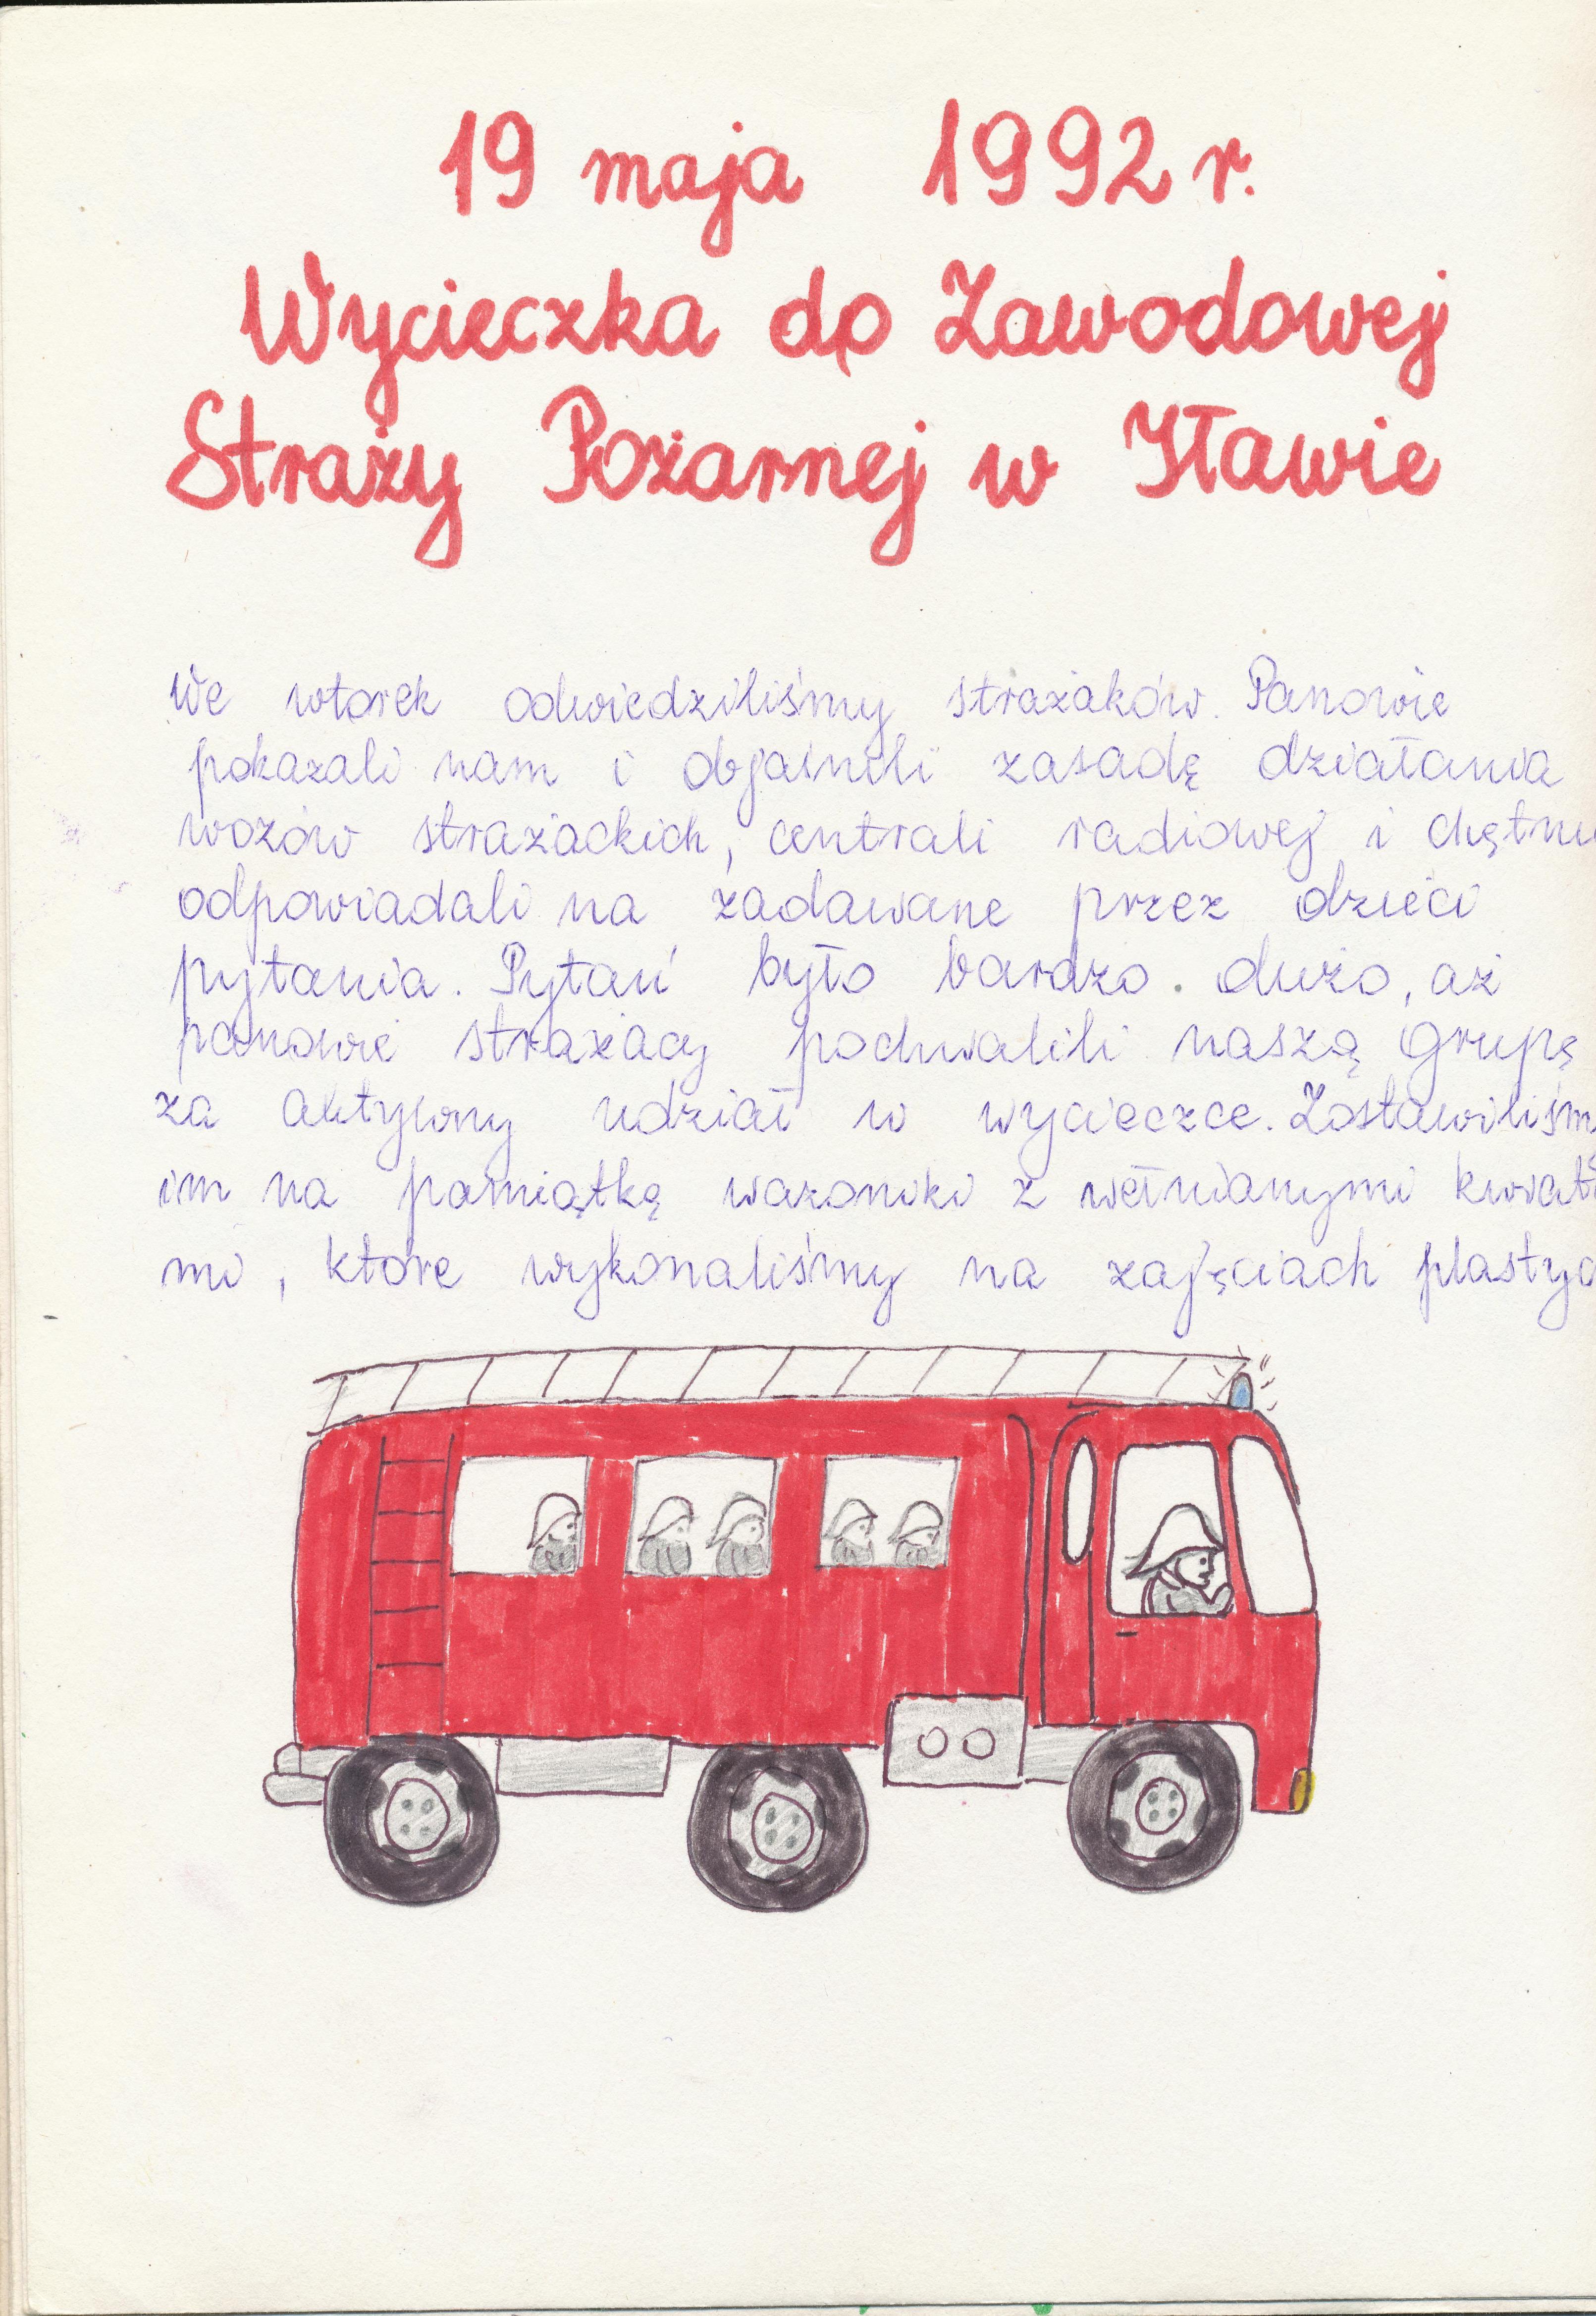 19 maja 1992 r.
Wycieczka do Zawodowej
Straży Pożarnej w Iławie
We wtorek odwiedziliśmy strażaków. Panowie
pokazali nam i objaśnili zasadę działania
wozów strażackich, centrali radiowej i chętni
odpowiadali na zadawane przez dzieci
pytania. Pytań było bardzo dużo, aż
panowie strażacy pochwalili naszą grupę
za aktywny udział w wycieczce. Zostawiliśm
im na pamiątkę wazoniki z wełnianymi kwiat
mi, które wykonaliśmy na zajęciach plastyc